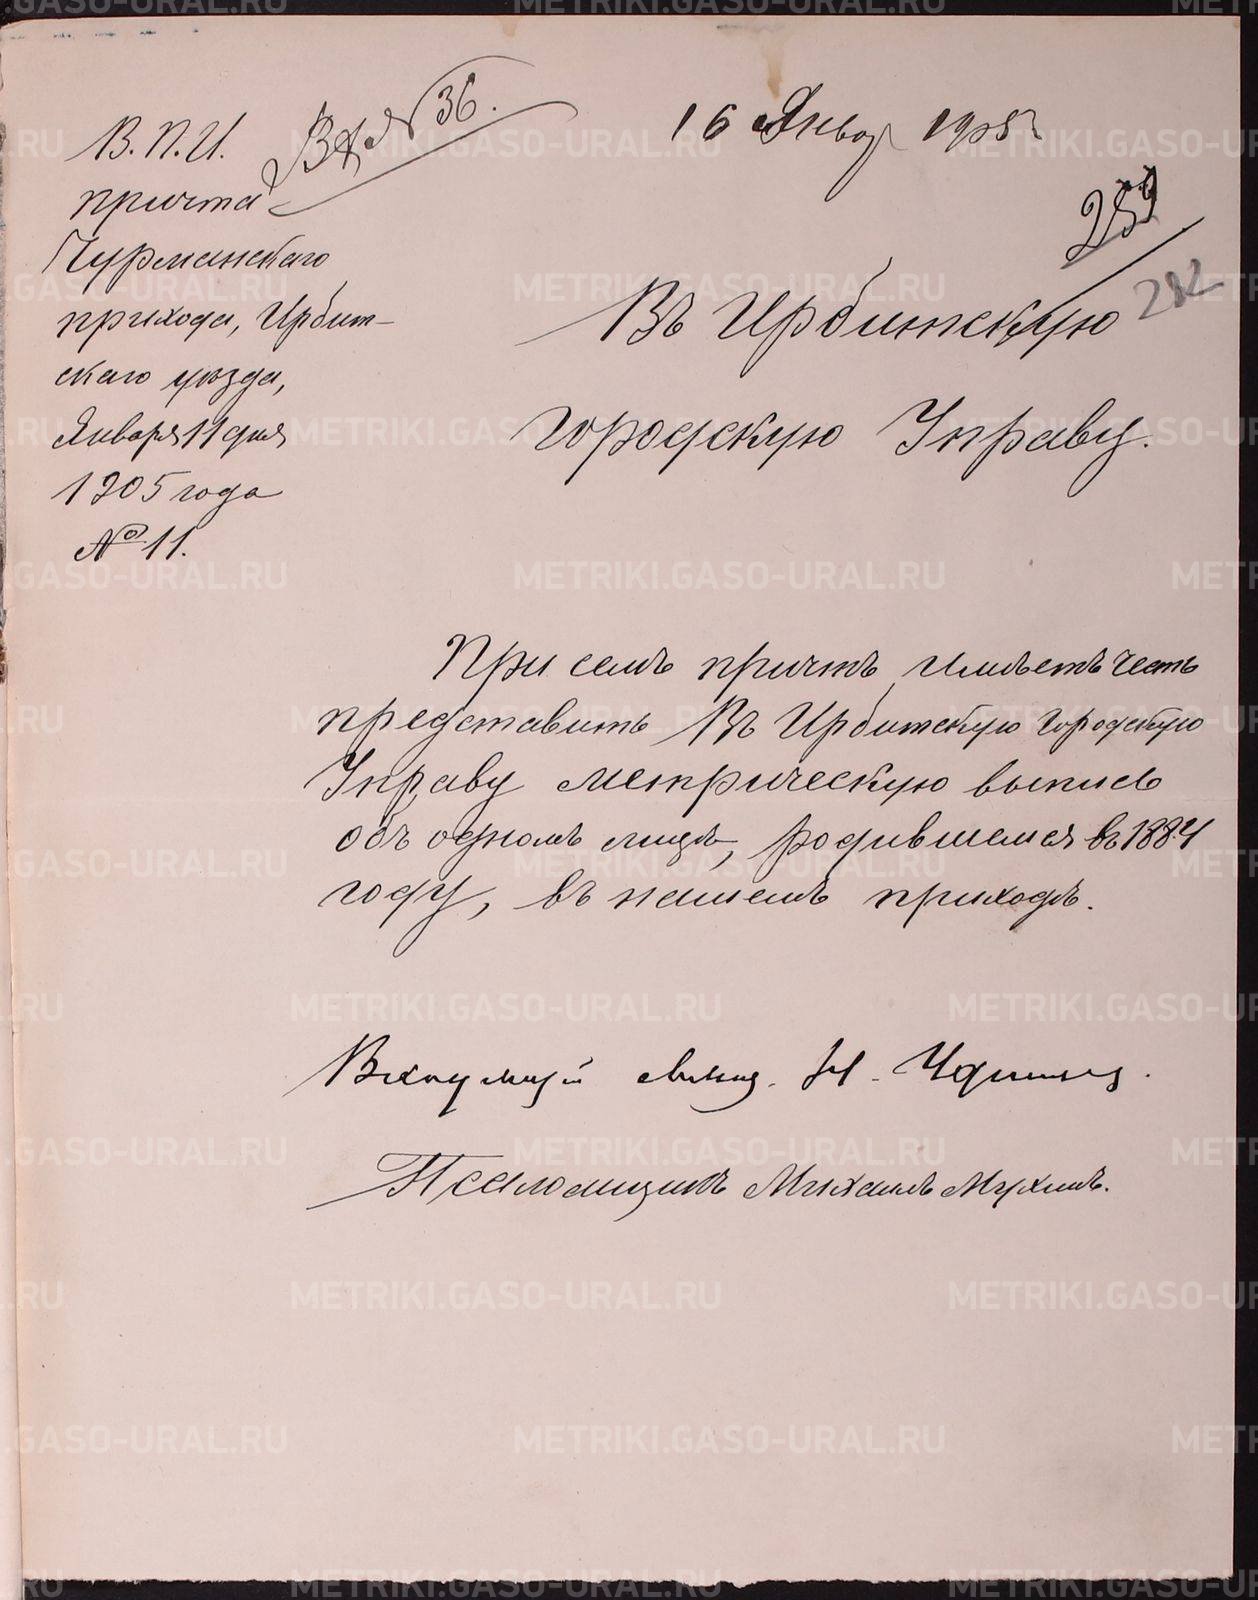 Вх № 36.
16 Январ 1905 г.
В. П. И.
причта
Чурманскаго
прихода, Ирбит-
скаго уѣзда,
Января 11 дня
1905 года
№ 11.
259
282
Въ Ирбитскую
Городскую Управу.
При семъ причтъ имѣетъ честь
представить Въ Ирбитскую Городскую
Управу метрическую выпись
объ одномъ лицѣ, родившемся въ 1884
году, въ нашемъ приходѣ.
свящ. Н.
Псаломщикъ Михаилъ Мухинъ.
METRIKI.GASO-URAL.RU